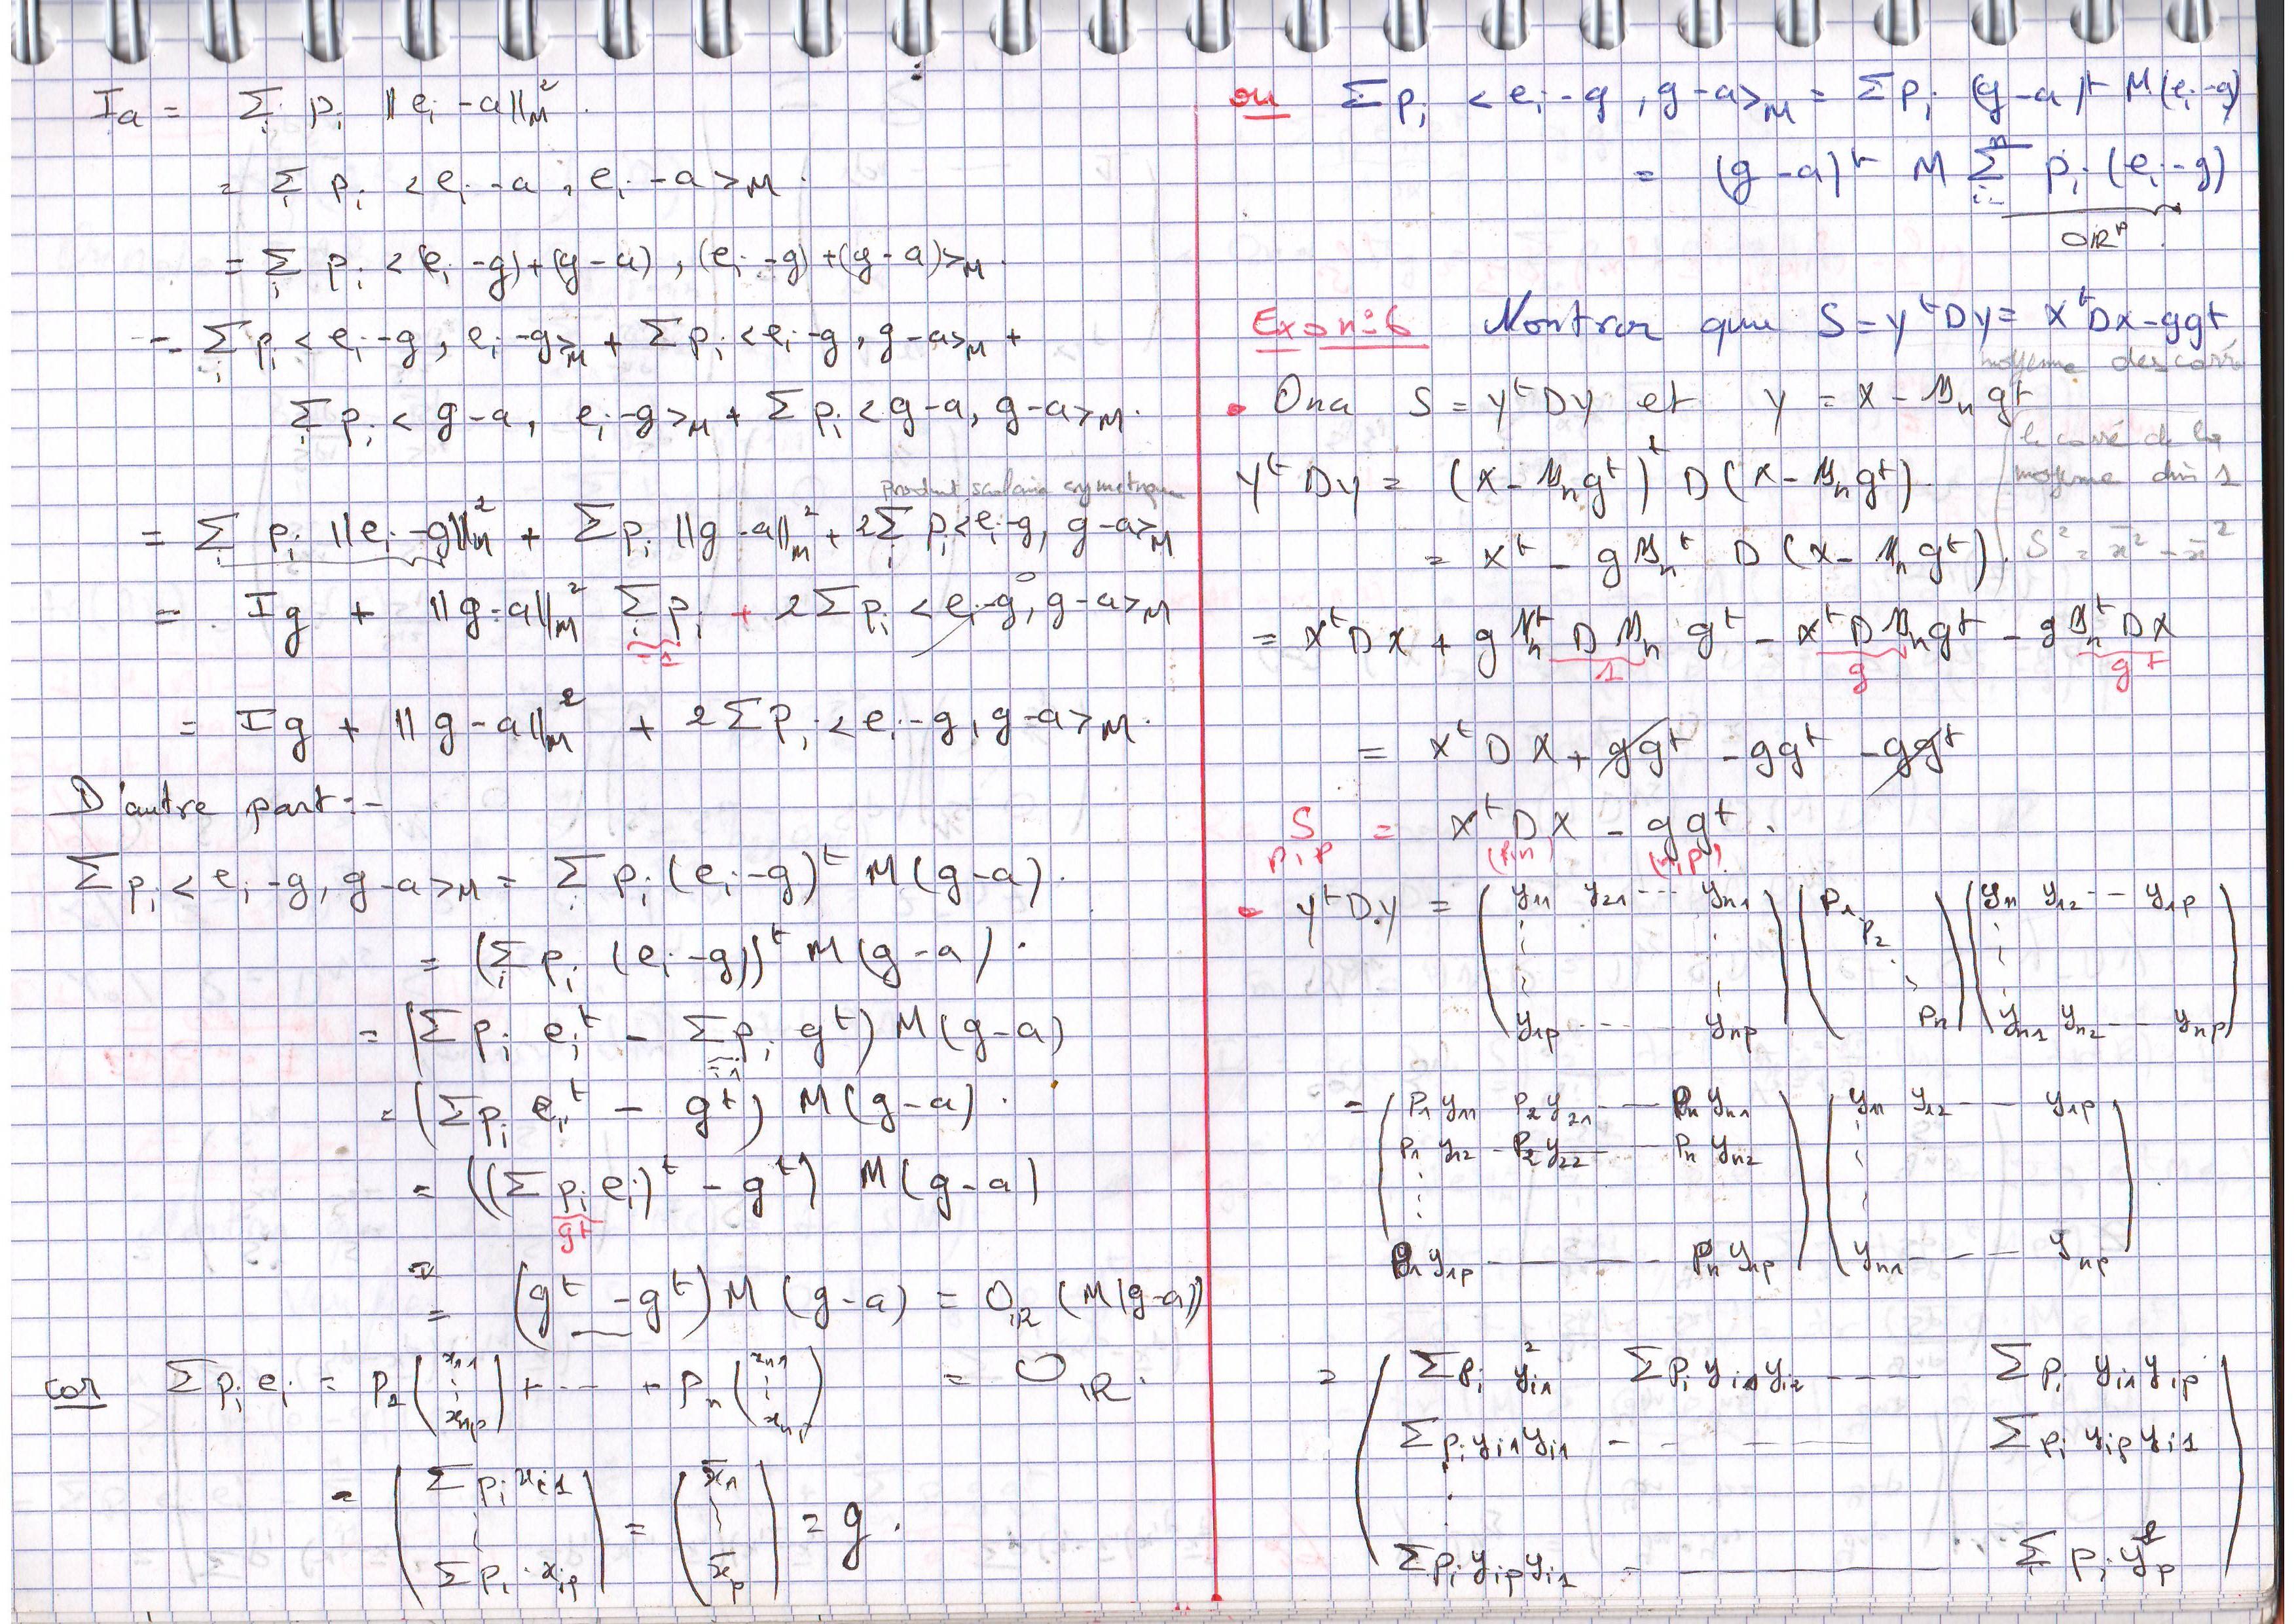 Ia = Σ_i p_i ||e_i - a||²_M .
= Σ_i p_i <e_i - a , e_i - a>_M .
= Σ_i p_i <(e_i - g)+(g - a) , (e_i - g)+(g - a)>_M .
= Σ_i p_i <e_i - g , e_i - g>_M + Σ p_i <e_i - g , g - a>_M +
Σ p_i <g - a , e_i - g>_M + Σ p_i <g - a , g - a>_M .
produit scalaire symetrique
= Σ_i p_i ||e_i - g||²_M + Σ p_i ||g - a||²_M + 2 Σ_i p_i <e_i - g , g - a>_M
= Ig + ||g - a||²_M Σ_i p_i + 2 Σ p_i <e_i - g , g - a>_M
= 1
0
= Ig + ||g - a||²_M + 2 Σ p_i <e_i - g , g - a>_M .
D'autre part :-
Σ p_i <e_i - g , g - a>_M = Σ_i p_i (e_i - g)^t M (g - a) .
= (Σ_i p_i (e_i - g))^t M (g - a) .
= (Σ p_i e_i^t - Σ p_i g^t) M (g - a)
= 1
= (Σ p_i e_i^t - g^t) M (g - a) .
= ((Σ p_i e_i)^t - g^t) M (g - a)
g^t
= (g^t - g^t) M (g - a) = 0_IR (M(g - a))
= 0_IR .
car Σ p_i e_i = p_1 (x_11 ⋮ x_np) + --- + p_n (x_n1 ⋮ x_np)
= (Σ p_i x_i1 ⋮ Σ p_i . x_ip) = (x̄_1 ⋮ x̄_p) = g .
ou Σ p_i <e_i - g , g - a>_M = Σ p_i (g - a)^t M (e_i - g)
= (g - a)^t M Σ^n_i= p_i (e_i - g)
0_IR^p .
Exo n°6 Montrer que S = Y^t D Y = X^t D X - g g^t
moyenne des carré
• On a S = Y^t D Y et Y = X - 1_n g^t
le carré de la
moyenne dim 1
Y^t D Y = (X - 1_n g^t)^t D (X - 1_n g^t) .
= X^t - g 1_n^t D (X - 1_n g^t) .
S² = x̄² - x̄²
= X^t D X + g 1_n^t D 1_n g^t - X^t D 1_n g^t - g 1_n^t D X
1 g g^t
= X^t D X + g g^t - g g^t - g g^t
S = X^t D X - g g^t .
p,p (p,n) (n,p)
• Y^t D . Y = (y_11 y_21 --- y_n1 ⋮ y_1p --- y_np) (p_1 p_2 ⋱ p_n) (y_11 y_12 -- y_1p ⋮ y_n1 y_n2 -- y_np)
= (p_1 y_11 p_2 y_21 --- p_n y_n1
p_1 y_12 - p_2 y_22 --- p_n y_n2
⋮
p_1 y_1p --- p_n y_np) (y_11 y_12 --- y_1p ⋮ y_n1 --- y_np)
= (Σ p_i y²_i1 Σ p_i y_i1 y_i2 ---- Σ p_i y_i1 y_ip
Σ p_i y_i1 y_i1 --- Σ p_i y_ip y_i1
⋮
Σ p_i y_ip y_i1 --- Σ p_i y²_p)